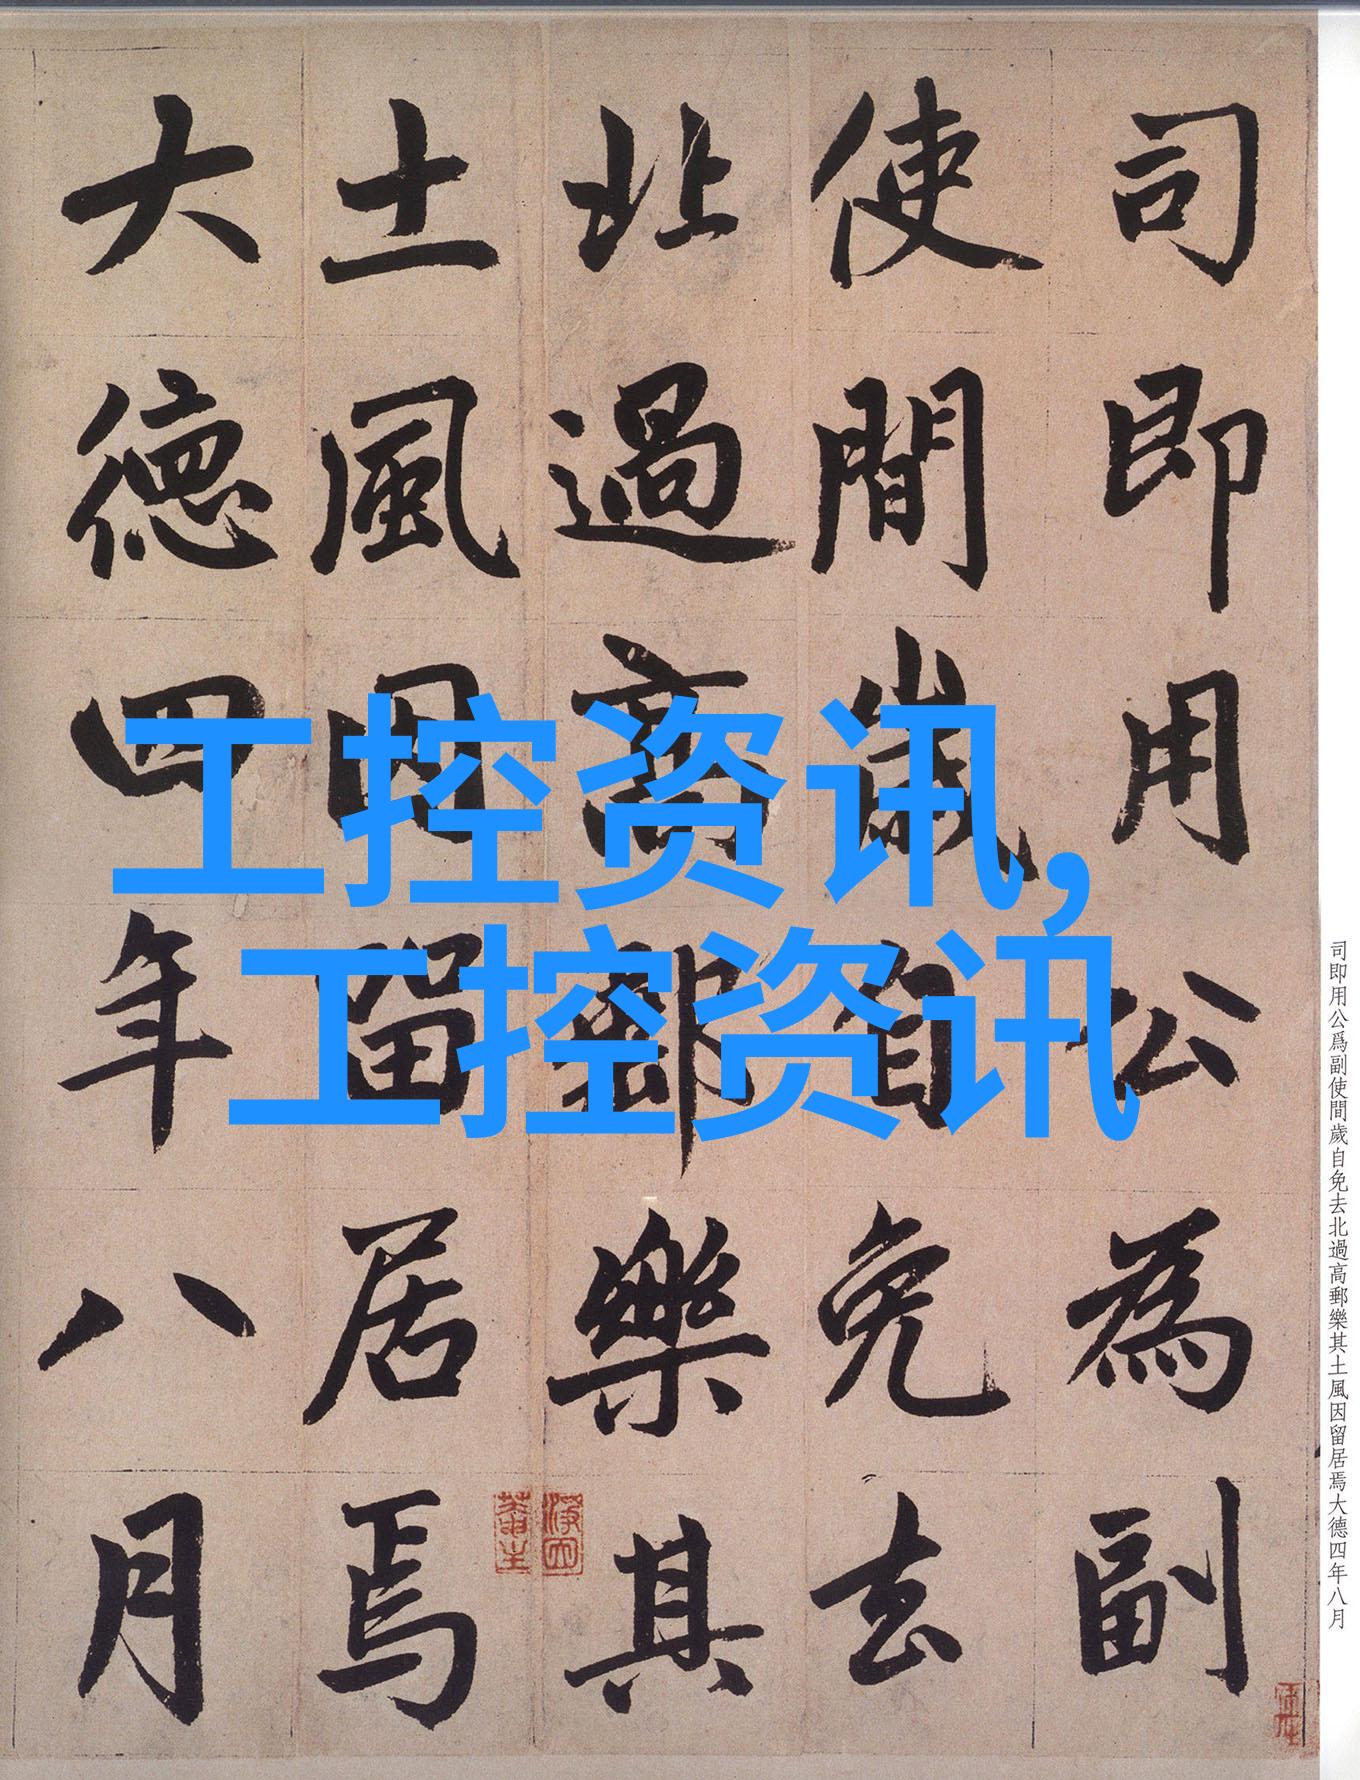 司即用公為副
使間歲自免去
北過高郵樂其
土風因留居焉
大德四年八月
工控资讯,
工控资讯
司即用公爲副使間歲自免去北過高郵樂其土風因留居焉大德四年八月